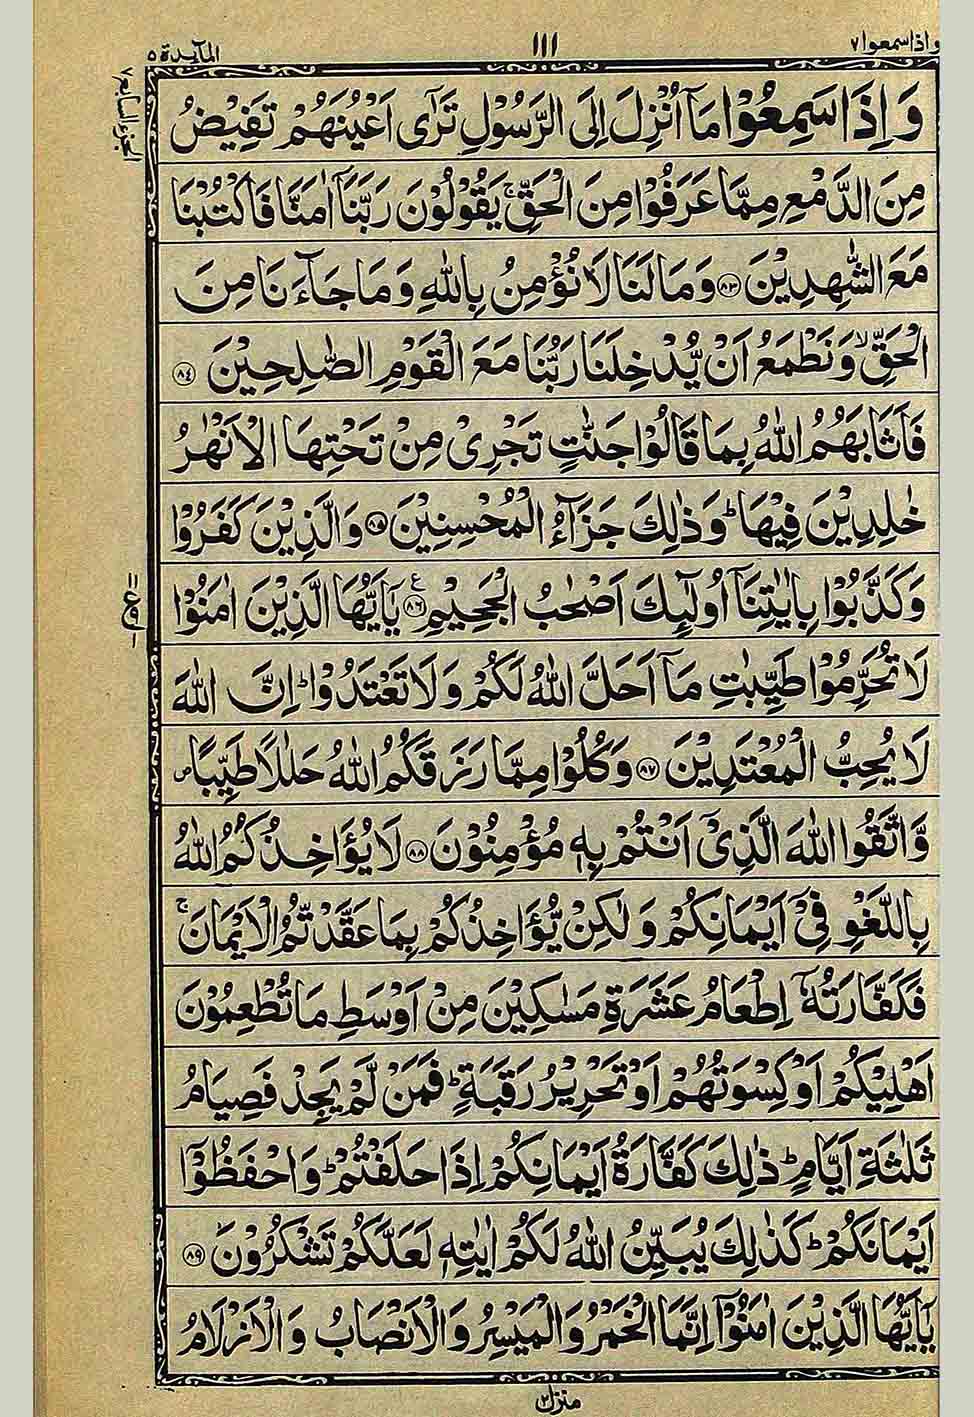 واذاسمعوا ٧
١١١
المآىدة ٥
الجزء السابع ٧
وَ اِذَا سَمِعُوْا مَاۤ اُنْزِلَ اِلَى الرَّسُوْلِ تَرٰۤى اَعْيُنَهُمْ تَفِيْضُ
مِنَ الدَّمْعِ مِمَّا عَرَفُوْا مِنَ الْحَقِّ ۚ يَقُوْلُوْنَ رَبَّنَاۤ اٰمَنَّا فَاكْتُبْنَا
مَعَ الشّٰهِدِيْنَ ٨٣ وَ مَا لَنَا لَا نُؤْمِنُ بِاللّٰهِ وَ مَا جَآءَنَا مِنَ
الْحَقِّ ۙ وَ نَطْمَعُ اَنْ يُّدْخِلَنَا رَبُّنَا مَعَ الْقَوْمِ الصّٰلِحِيْنَ ٨٤
فَاَثَابَهُمُ اللّٰهُ بِمَا قَالُوْا جَنّٰتٍ تَجْرِىْ مِنْ تَحْتِهَا الْاَنْهٰرُ
خٰلِدِيْنَ فِيْهَا ؕ وَ ذٰلِكَ جَزَآءُ الْمُحْسِنِيْنَ ٨٥ وَ الَّذِيْنَ كَفَرُوْا
وَ كَذَّبُوْا بِاٰيٰتِنَاۤ اُولٰٓئِكَ اَصْحٰبُ الْجَحِيْمِ ٨٦ ع يٰۤاَيُّهَا الَّذِيْنَ اٰمَنُوْا
لَا تُحَرِّمُوْا طَيِّبٰتِ مَاۤ اَحَلَّ اللّٰهُ لَكُمْ وَ لَا تَعْتَدُوْا ؕ اِنَّ اللّٰهَ
لَا يُحِبُّ الْمُعْتَدِيْنَ ٨٧ وَ كُلُوْا مِمَّا رَزَقَكُمُ اللّٰهُ حَلٰلًا طَيِّبًا ص
وَّ اتَّقُوا اللّٰهَ الَّذِىْۤ اَنْتُمْ بِهٖ مُؤْمِنُوْنَ ٨٨ لَا يُؤَاخِذُكُمُ اللّٰهُ
بِاللَّغْوِ فِىْۤ اَيْمَانِكُمْ وَ لٰكِنْ يُّؤَاخِذُكُمْ بِمَا عَقَّدْتُّمُ الْاَيْمَانَ ۚ
فَكَفَّارَتُهٗۤ اِطْعَامُ عَشَرَةِ مَسٰكِيْنَ مِنْ اَوْسَطِ مَا تُطْعِمُوْنَ
اَهْلِيْكُمْ اَوْ كِسْوَتُهُمْ اَوْ تَحْرِيْرُ رَقَبَةٍ ؕ فَمَنْ لَّمْ يَجِدْ فَصِيَامُ
ثَلٰثَةِ اَيَّامٍ ؕ ذٰلِكَ كَفَّارَةُ اَيْمَانِكُمْ اِذَا حَلَفْتُمْ ؕ وَ احْفَظُوْۤا
اَيْمَانَكُمْ ؕ كَذٰلِكَ يُبَيِّنُ اللّٰهُ لَكُمْ اٰيٰتِهٖ لَعَلَّكُمْ تَشْكُرُوْنَ ٨٩
يٰۤاَيُّهَا الَّذِيْنَ اٰمَنُوْۤا اِنَّمَا الْخَمْرُ وَ الْمَيْسِرُ وَ الْاَنْصَابُ وَ الْاَزْلَامُ
منزل ٢